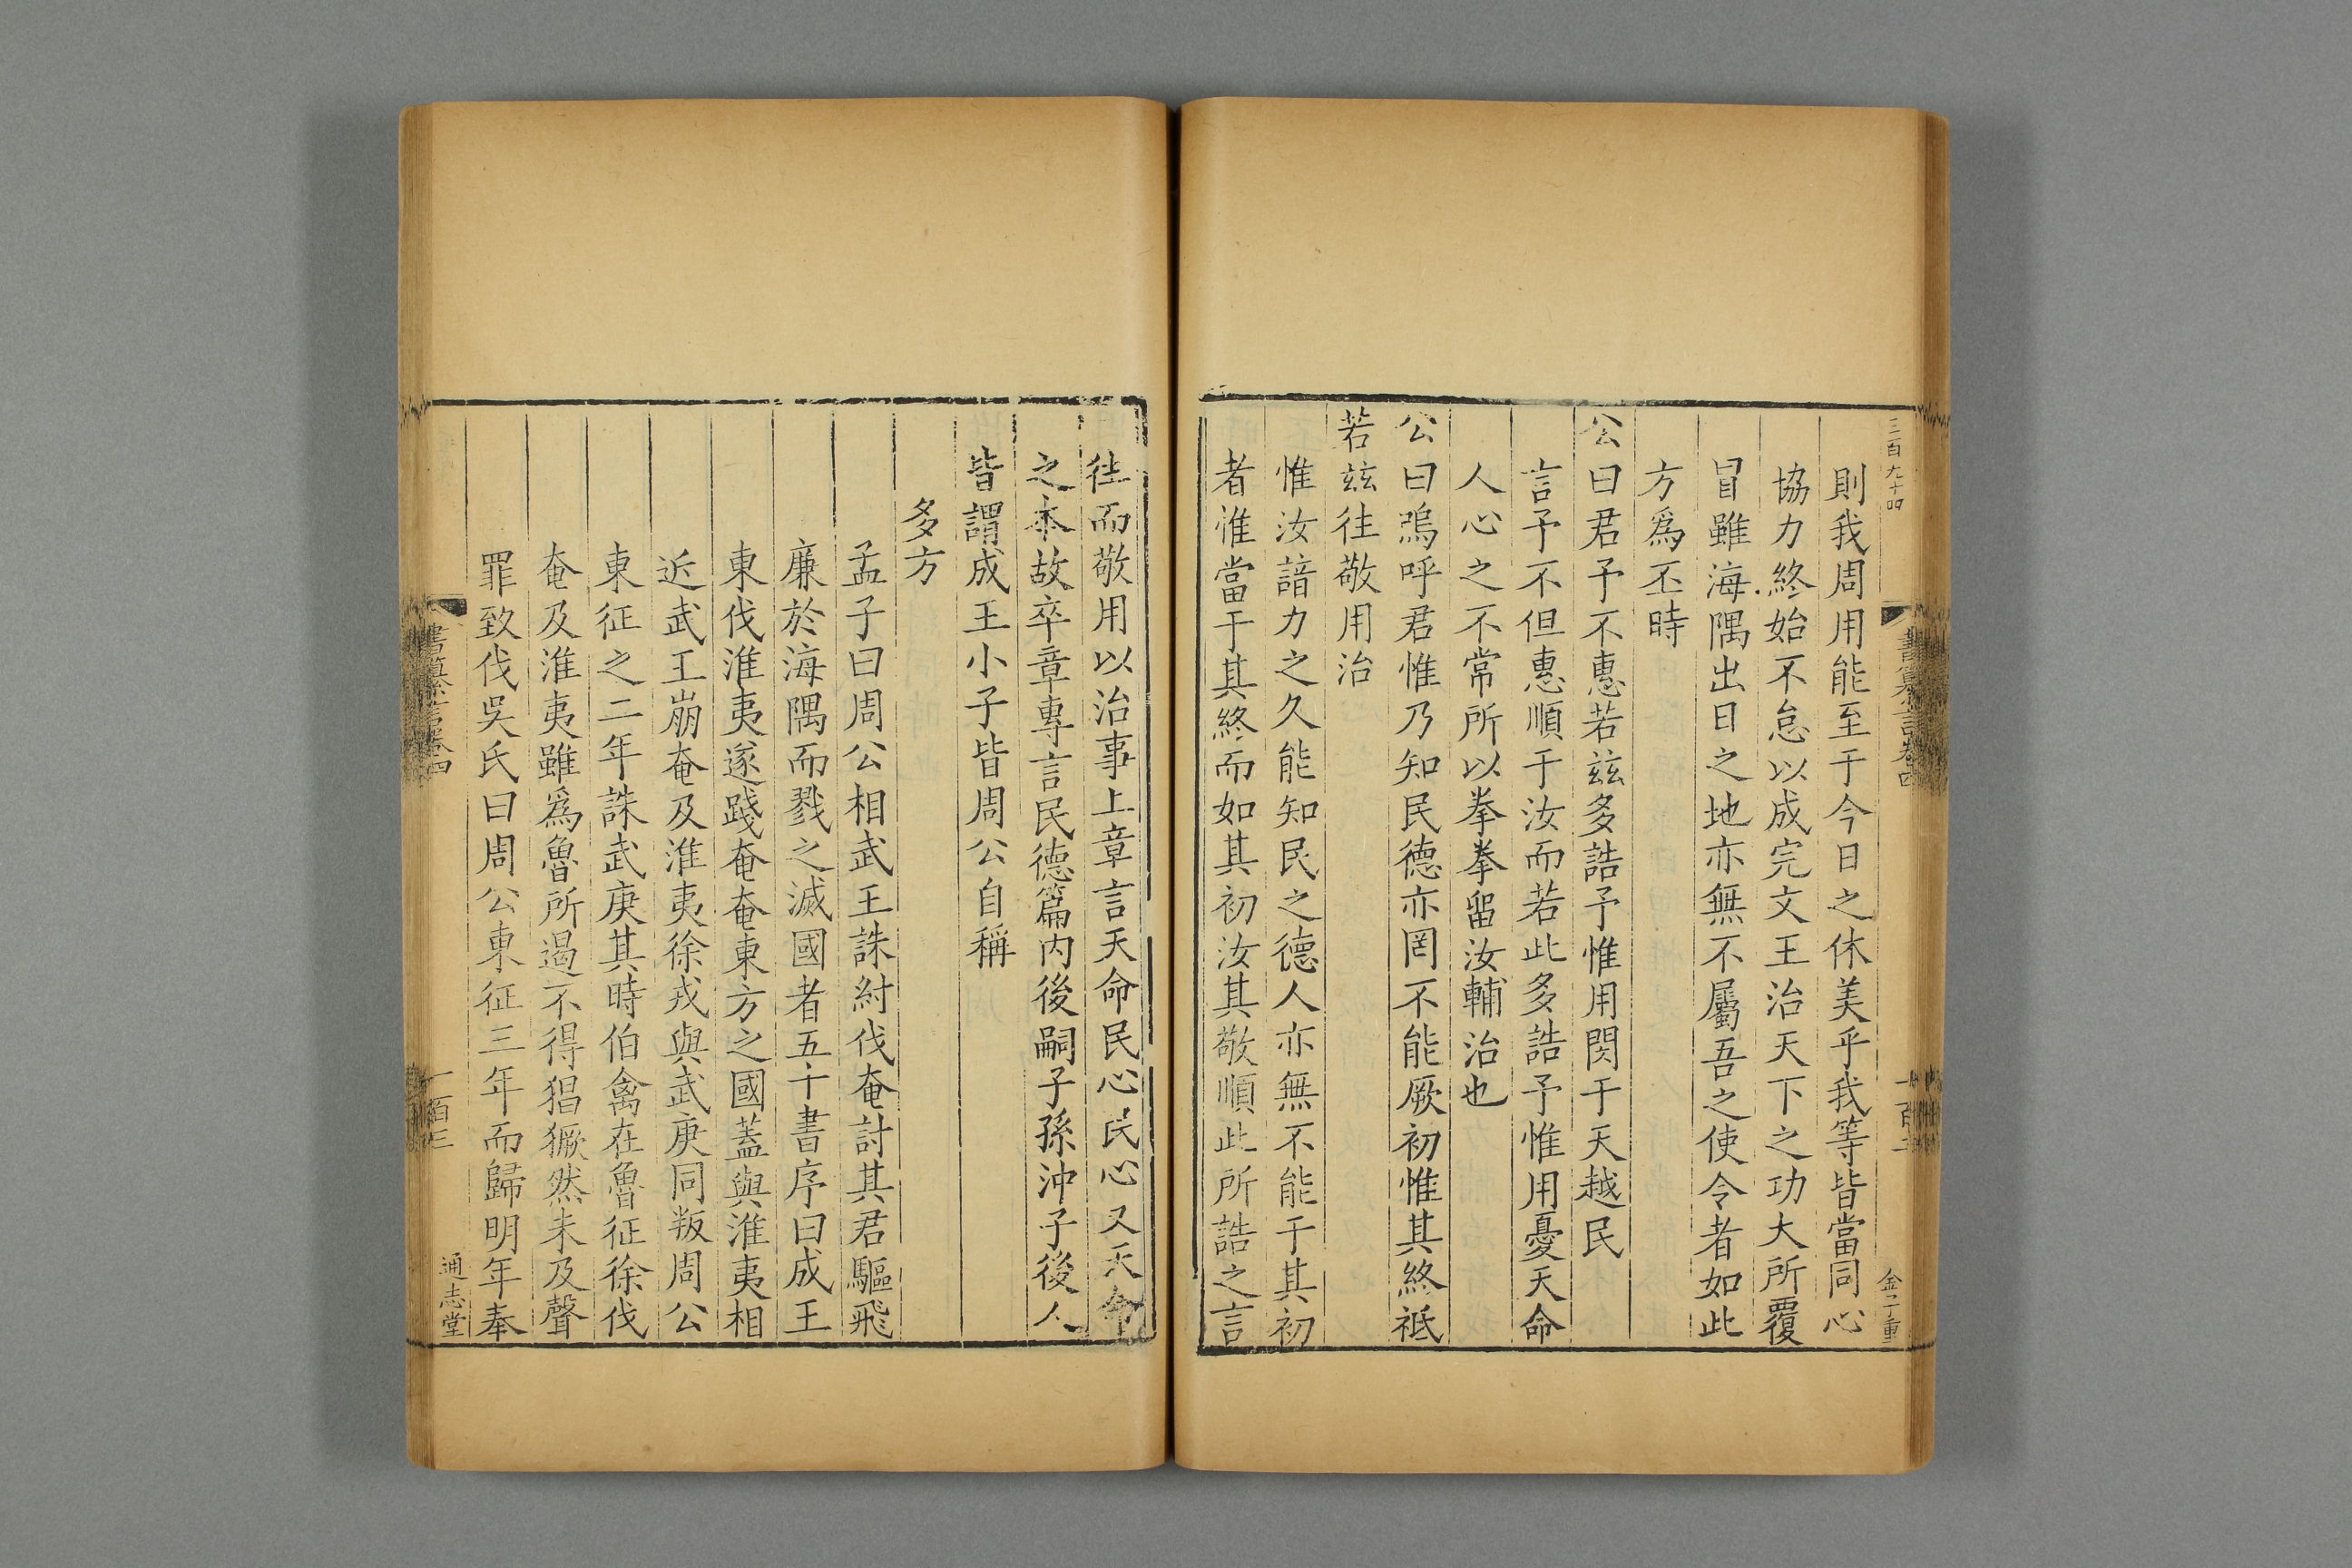 三百九十四
書纂言卷四
一百二
金二重
則我周用能至于今日之休美乎我等皆當同心
協力終始不怠以成完文王治天下之功大所覆
冒雖海隅出日之地亦無不屬吾之使令者如此
方爲丕時
公曰君予不惠若玆多誥予惟用閔于天越民
言予不但惠順于汝而若此多誥予惟用憂天命
人心之不常所以拳拳留汝輔治也
公曰嗚呼君惟乃知民德亦罔不能厥初惟其終祗
若玆往敬用治
惟汝諳力之久能知民之德人亦無不能于其初
者惟當于其終而如其初汝其敬順此所誥之言
往而敬用以治事上章言天命民心民心又天命
之本故卒章專言民德篇内後嗣子孫沖子後人
皆謂成王小子皆周公自稱
多方
孟子曰周公相武王誅紂伐奄討其君驅飛
廉於海隅而戮之滅國者五十書序曰成王
東伐淮夷遂踐奄奄東方之國蓋與淮夷相
近武王崩奄及淮夷徐戎與武庚同叛周公
東征之二年誅武庚其時伯禽在魯征徐伐
奄及淮夷雖爲魯所遏不得猖獗然未及聲
罪致伐吳氏曰周公東征三年而歸明年奉
書纂言卷四
一百三
通志堂